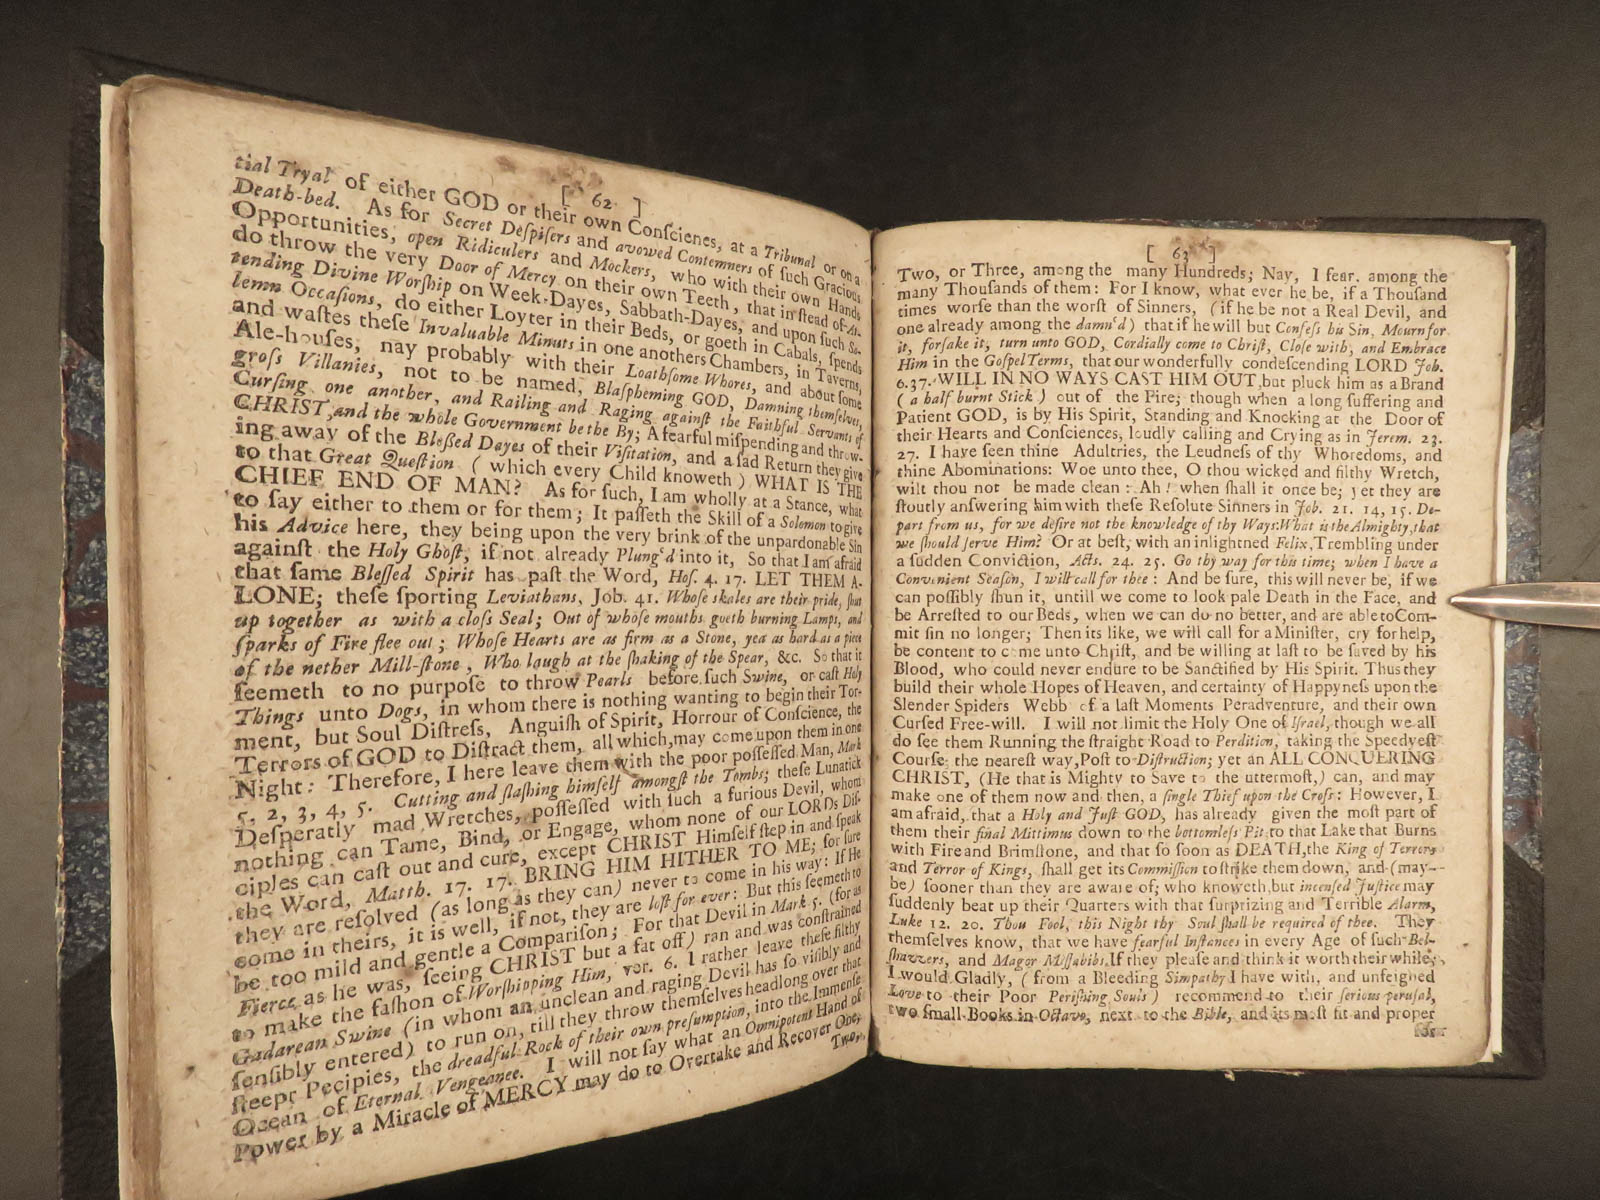 [ 62 ]
tial Tryal of either GOD or their own Conſcienes, at a Tribunal or on a
Death-bed. As for Secret Deſpiſers and avowed Contemners of ſuch Gracious
Opportunities, open Ridiculers and Mockers, who with their own Hands
do throw the very Door of Mercy on their own Teeth, that in ſtead of At-
tending Divine Worſhip on Week-Dayes, Sabbath-Dayes, and upon ſuch So-
lemn Occaſions, do either Loyter in their Beds, or goeth in Cabals, ſpends
and waſtes theſe Invaluable Minuts in one anothers Chambers, in Taverns,
Ale-houſes, nay probably with their Loathſome Whores, and about ſome
groſs Villanies, not to be named, Blaſpheming GOD, Damning themſelves,
Curſing one another, and Railing and Raging againſt the Faithful Servants of
CHRIST, and the whole Government be the By; A fearful miſpending and throw-
ing away of the Bleſſed Dayes of their Viſitation, and a ſad Return they give
to that Great Queſtion ( which every Child knoweth ) WHAT IS THE
CHIEF END OF MAN? As for ſuch, I am wholly at a Stance, what
to ſay either to them or for them; It paſſeth the Skill of a Solomon to give
his Advice here, they being upon the very brink of the unpardonable Sin
againſt the Holy Ghoſt, if not already Plung'd into it, So that I am afraid
that ſame Bleſſed Spirit has paſt the Word, Hoſ. 4. 17. LET THEM A-
LONE; theſe ſporting Leviathans, Job. 41. Whoſe skales are their pride, ſhut
up together as with a cloſs Seal; Out of whoſe mouths goeth burning Lamps, and
ſparks of Fire flee out; Whoſe Hearts are as firm as a Stone, yea as hard as a piece
of the nether Mill-ſtone, Who laugh at the ſhaking of the Spear, &c. So that it
ſeemeth to no purpoſe to throw Pearls before ſuch Swine, or caſt Holy
Things unto Dogs, in whom there is nothing wanting to begin their Tor-
ment, but Soul Diſtreſs, Anguiſh of Spirit, Horrour of Conſcience, the
Terrors of GOD to Diſtract them, all which, may come upon them in one
Night: Therefore, I here leave them with the poor poſſeſſed Man, Mark
5, 2, 3, 4, 5. Cutting and ſlaſhing himſelf amongſt the Tombs; theſe Lunatick
Deſperatly mad Wretches, poſſeſſed with ſuch a furious Devil, whom
nothing can Tame, Bind, or Engage, whom none of our LORDs Diſ-
ciples can caſt out and cure, except CHRIST Himſelf ſtep in and ſpeak
the Word, Matth. 17. 17. BRING HIM HITHER TO ME; for ſure
they are reſolved (as long as they can) never to come in his way: If He
come in theirs, it is well, if not, they are loſt for ever: But this ſeemeth to
be too mild and gentle a Compariſon; For that Devil in Mark 5. (for as
Fierce as he was, ſeeing CHRIST but a far off) ran and was conſtrained
to make the faſhon of Worſhipping Him, ver. 6. I rather leave theſe filthy
Gadarean Swine (in whom an unclean and raging Devil has ſo viſibly and
ſenſibly entered) to run on, till they throw themſelves headlong over that
ſteepr Pecipies, the dreadful Rock of their own preſumption, into the Immenſe
Ocean of Eternal Vengeance. I will not ſay what an Omnipotent Hand of
Power by a Miracle of MERCY may do to Overtake and Recover One,
Two,
[ 63 ]
Two, or Three, among the many Hundreds; Nay, I fear among the
many Thouſands of them: For I know, what ever he be, if a Thouſand
times worſe than the worſt of Sinners, (if he be not a Real Devil, and
one already among the damn'd) that if he will but Confeſs his Sin, Mourn for
it, forſake it, turn unto GOD, Cordially come to Chriſt, Cloſe with, and Embrace
Him in the Goſpel Terms, that our wonderfully condeſcending LORD Job.
6.37. WILL IN NO WAYS CAST HIM OUT, but pluck him as a Brand
( a half burnt Stick ) out of the Fire; though when a long ſuffering and
Patient GOD, is by His Spirit, Standing and Knocking at the Door of
their Hearts and Conſciences, loudly calling and Crying as in Jerem. 23.
27. I have ſeen thine Adultries, the Leudneſs of thy Whoredoms, and
thine Abominations: Woe unto thee, O thou wicked and filthy Wretch,
wilt thou not be made clean: Ah! when ſhall it once be; yet they are
ſtoutly anſwering him with theſe Reſolute Sinners in Job. 21. 14, 15. De-
part from us, for we deſire not the knowledge of thy Ways: What is the Almighty, that
we ſhould ſerve Him? Or at beſt, with an inlightned Felix, Trembling under
a ſudden Conviction, Acts. 24. 25. Go thy way for this time; when I have a
Convenient Seaſon, I will call for thee: And be ſure, this will never be, if we
can poſſibly ſhun it, untill we come to look pale Death in the Face, and
be Arreſted to our Beds, when we can do no better, and are able to Com-
mit ſin no longer; Then its like, we will call for a Miniſter, cry for help,
be content to come unto Chriſt, and be willing at laſt to be ſaved by his
Blood, who could never endure to be Sanctified by His Spirit. Thus they
build their whole Hopes of Heaven, and certainty of Happyneſs upon the
Slender Spiders Webb of a laſt Moments Peradventure, and their own
Curſed Free-will. I will not limit the Holy One of Iſrael, though we all
do ſee them Running the ſtraight Road to Perdition, taking the Speedyeſt
Courſe the neareſt way, Poſt to Diſtruction; yet an ALL CONQUERING
CHRIST, (He that is Mighty to Save to the uttermoſt,) can, and may
make one of them now and then, a ſingle Thief upon the Croſs: However, I
am afraid, that a Holy and Juſt GOD, has already given the moſt part of
them their final Mittimus down to the bottomleſs Pit to that Lake that Burns
with Fire and Brimſtone, and that ſo ſoon as DEATH, the King of Terrors
and Terror of Kings, ſhall get its Commiſſion to ſtrike them down, and (may-
be) ſooner than they are aware of; who knoweth, but incenſed Juſtice may
ſuddenly beat up their Quarters with that ſurprizing and Terrible Alarm,
Luke 12. 20. Thou Fool, this Night thy Soul ſhall be required of thee. They
themſelves know, that we have fearful Inſtances in every Age of ſuch Bel-
ſhazzers, and Magor Miſſabibs. If they pleaſe and think it worth their while,
I would Gladly, ( from a Bleeding Simpathy I have with, and unfeigned
Love to their Poor Periſhing Souls ) recommend to their ſerious peruſal,
two ſmall Books in Octavo, next to the Bible, and its moſt fit and proper